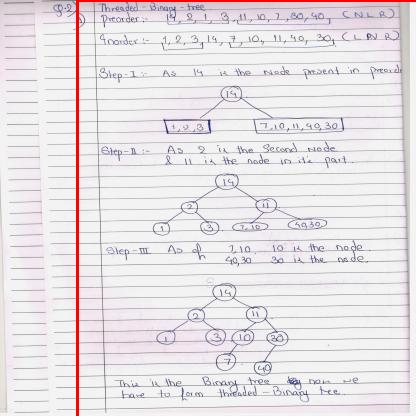 Q-2) Threaded-Binary-tree
Preorder:- 14, 2, 1, 3, 11, 10, 7, 30, 40, (N L R)
Inorder:- 1, 2, 3, 14, 7, 10, 11, 40, 30, (L N R)
Step-I:- As 14 is the Node present in preorde
14
1, 2, 3
7, 10, 11, 40, 30
Step-II:- As 2 is the Second Node
& 11 is the node in it's part.
14
2 11
1 3 7, 10 40, 30
Step-III As of 7, 10. 10 is the node.
40, 30 30 is the node.
14
2 11
1 3 10 30
7 40
This is the Binary tree now we
have to form threaded-Binary tree.